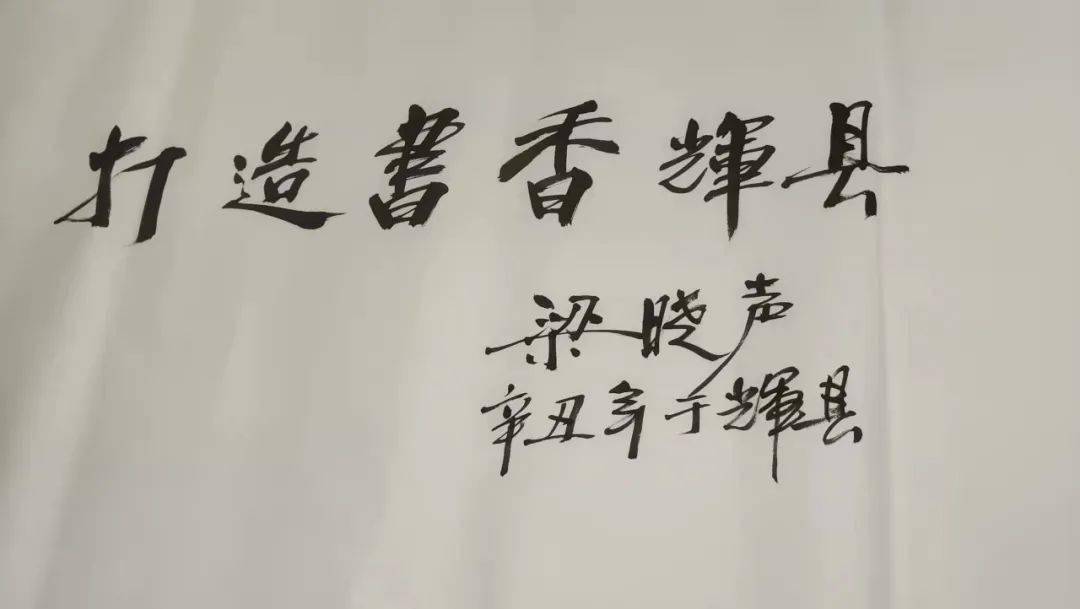 打造書香輝县
梁晓声
辛丑年于輝县